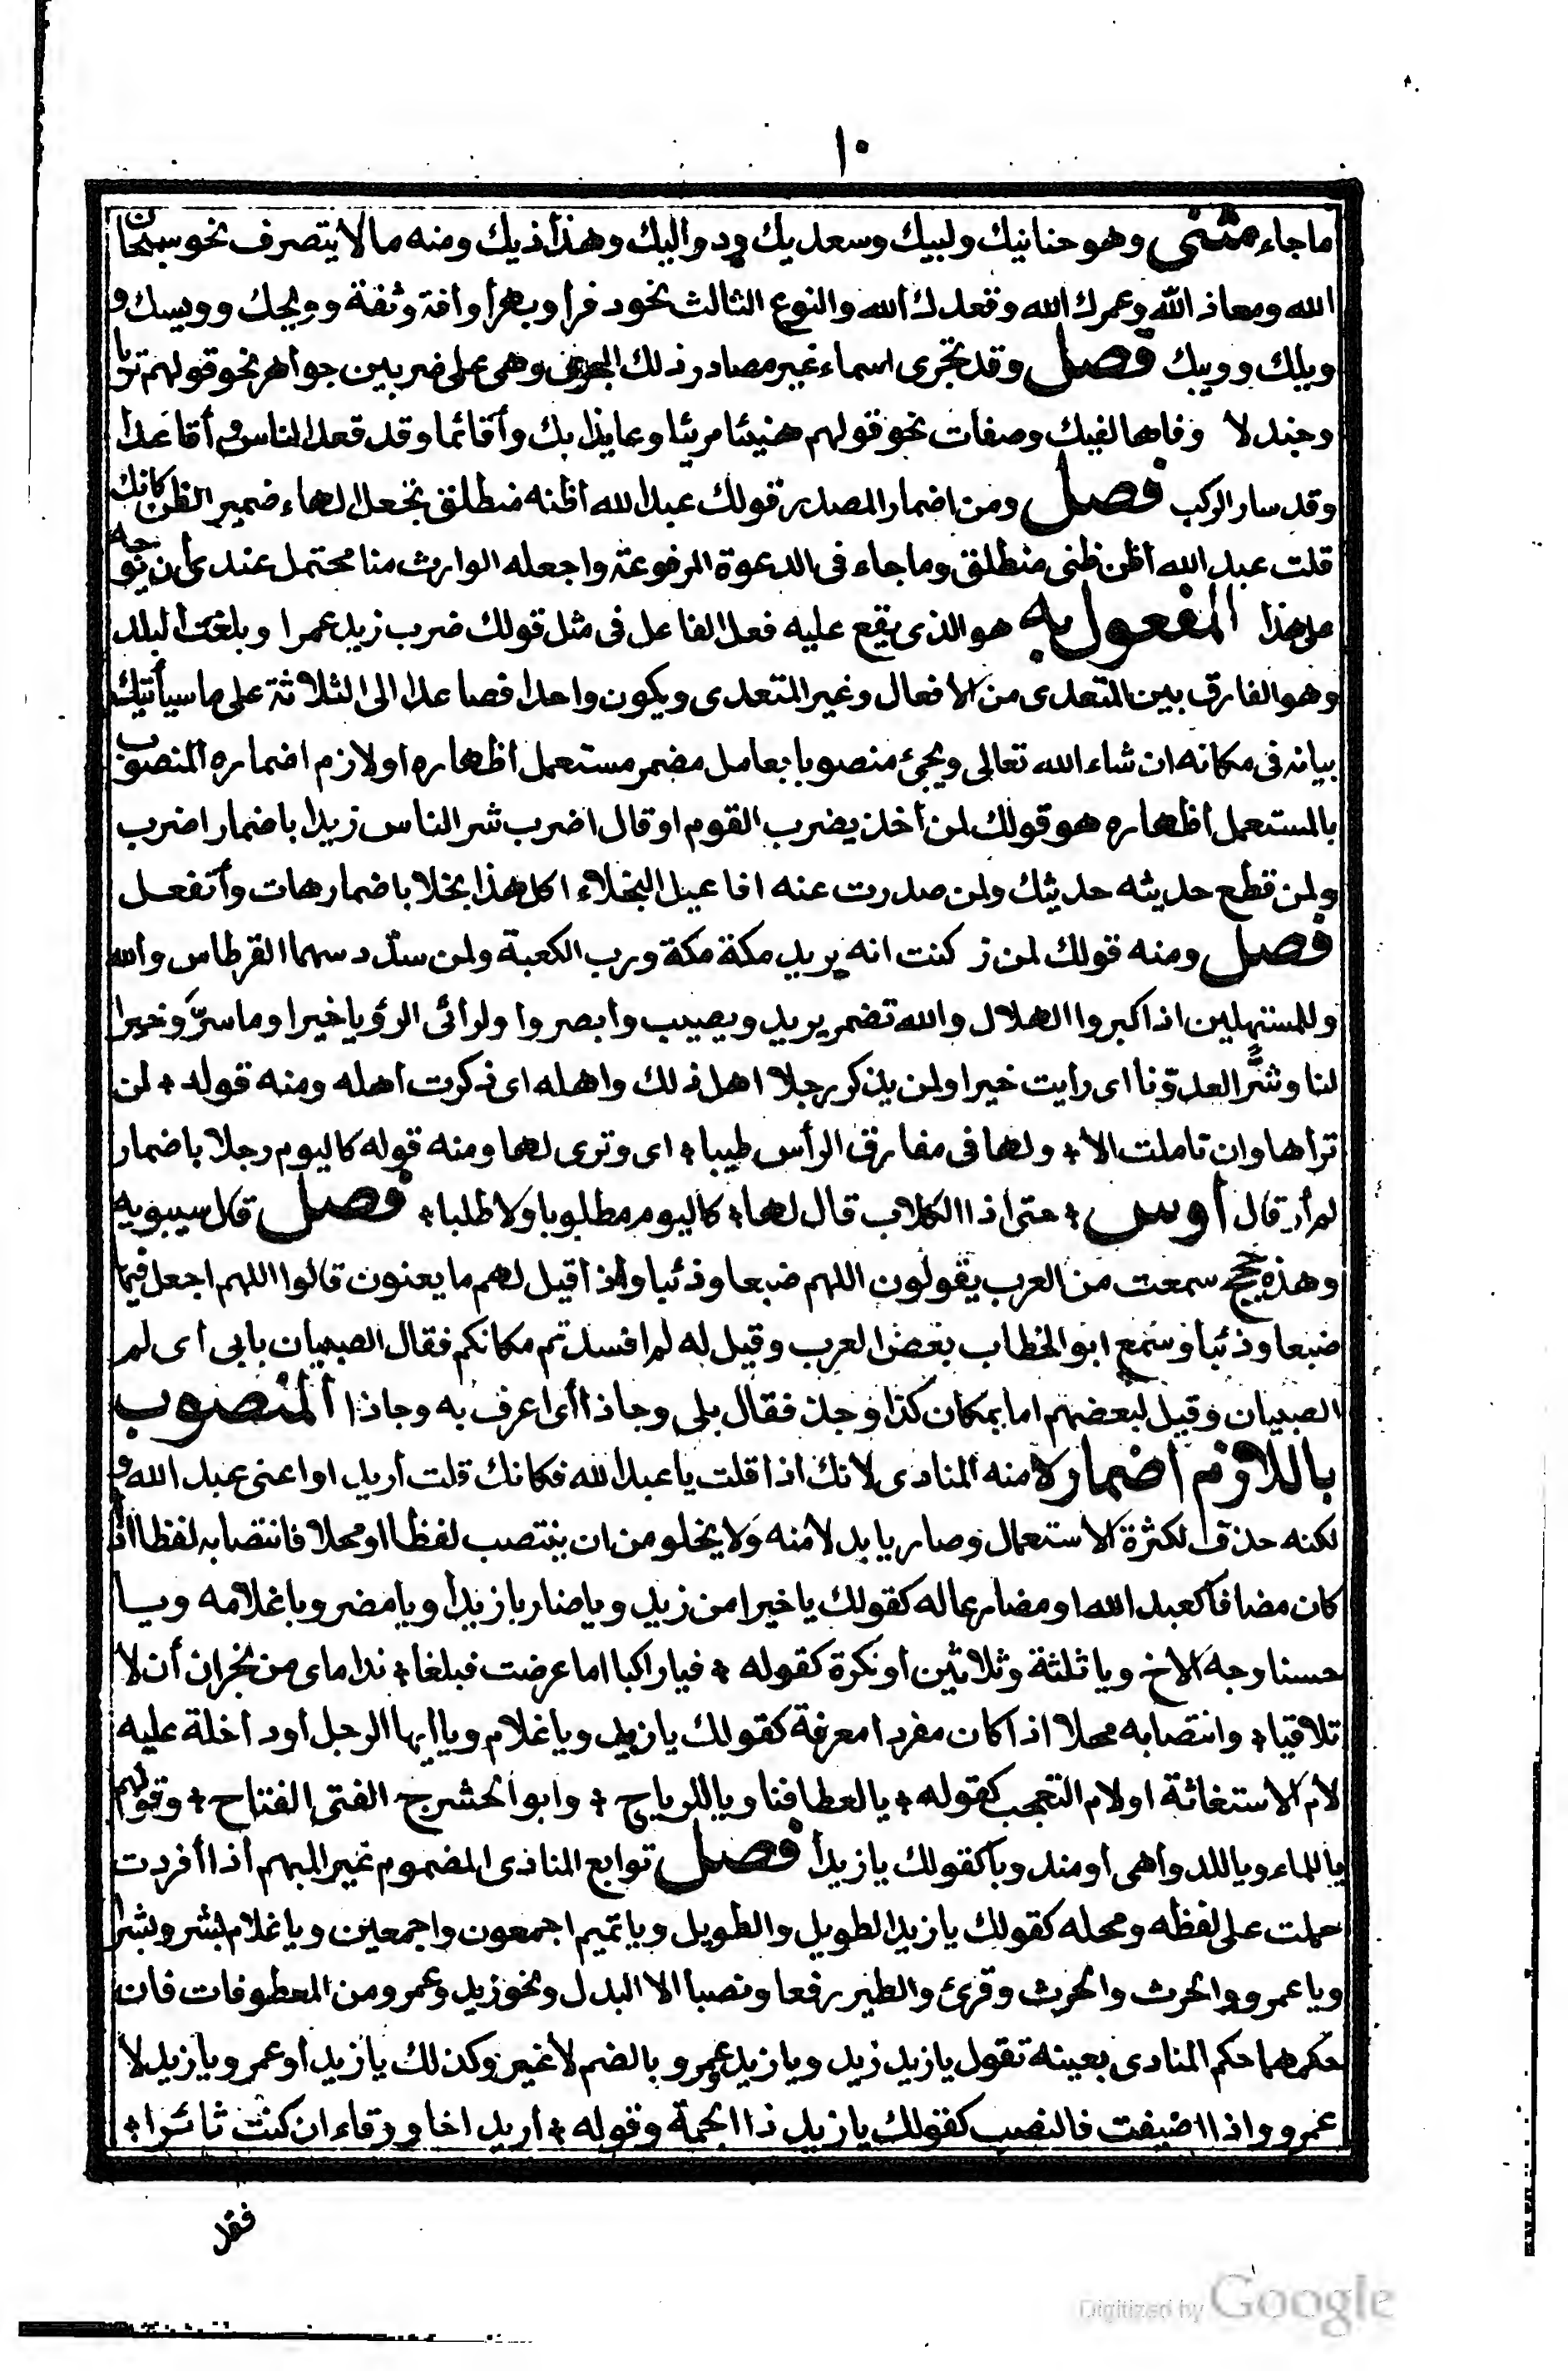 ١٠
ما جاء مثنى وهو حنانيك ولبيك وسعديك ودواليك وهذاذيك ومنه ما لا يتصرف نحو سبحان
الله ومعاذ الله وعمرك الله وقعدك الله والنوع الثالث نحو دفرا وبهرا وافة وتفة وويحك وويسك و
ويلك وويبك فصل وقد تجرى اسماء غير مصادر ذلك المجرى وهى على ضربين جواهر نحو قولهم تربا
وجندلا وفاها لفيك وصفات نحو قولهم هنيئا مريئا وعايذا بك وأقائما وقد قعد الناس وأقاعدا
وقد سار الركب فصل ومن اضمار المصدر قولك عبد الله أظنه منطلق تجعل الهاء ضمير الظن كانك
قلت عبد الله أظن ظنى منطلق وما جاء فى الدعوة المرفوعة واجعله الوارث منا محتمل عندى أن يوجه
على هذا المفعول به هو الذى يقع عليه فعل الفاعل فى مثل قولك ضرب زيد عمرا وبلغت البلد
وهو الفارق بين المتعدى من الافعال وغير المتعدى ويكون واحدا فصاعدا الى الثلاثة على ما سيأتيك
بيانه فى مكانه ان شاء الله تعالى ويجئ منصوبا بعامل مضمر مستعمل أظهاره او لازم اضماره المنصوب
بالمستعمل أظهاره هو قولك لمن أخذ يضرب القوم او قال اضرب شر الناس زيدا باضمار اضرب
ولمن قطع حديثه حديثك ولمن صدرت عنه افاعيل البخلاء اكل هذا بخلا باضمار هات وأتفعل
فصل ومنه قولك لمن زكنت انه يريد مكة مكة ورب الكعبة ولمن سدد سهما القرطاس والله
وللمستهلين اذا كبروا الهلال والله تضمر يريد ويصيب وأبصروا ولرائى الرؤيا خيرا وما سرّ وخيرا
لنا وشرّا لعدوّنا اى رأيت خيرا ولمن يذكر رجلا اهل ذلك واهله اى ذكرت أهله ومنه قوله * لن
تراها وان تاملت الا * ولها فى مفارق الرأس طيبا * اى وترى لها ومنه قوله كاليوم رجلا باضمار
لم أر قال أوس * حتى اذا الكلاب قال لها * كاليوم مطلوبا ولا طلبا * فصل قال سيبويه
وهذه حجج سمعت من العرب يقولون اللهم ضبعا وذئبا واذا قيل لهم ما يعنون قالوا اللهم اجعل فيها
ضبعا وذئبا وسمع ابو الخطاب بعض العرب وقيل له لم افسدتم مكانكم فقال الصبيان بابى أى لم
الصبيان وقيل لبعضهم اما بمكان كذا وجذ فقال بلى وجاذا أى اعرف به وجاذا المنصوب
باللازم أضماره منه المنادى لانك اذا قلت يا عبد الله فكانك قلت أريد او اعنى عبد الله و
لكنه حذف لكثرة الاستعمال وصار يا بدلا منه ولا يخلو من ان ينتصب لفظا او محلا فانتصابه لفظا اذا
كان مضافا كعبد الله او مضارعا له كقولك يا خيرا من زيد ويا ضاربا زيدا ويا مضروبا غلامه ويا
حسنا وجه الاخ ويا ثلثة وثلاثين أو نكرة كقوله * فيا راكبا اما عرضت فبلغا * نداماى من نجران أن لا
تلاقيا * وانتصابه محلا اذا كان مفردا معرفة كقولك يا زيد ويا غلام ويا أيها الرجل أو داخلة عليه
لام الاستغاثة او لام التعجب كقوله * يا لعطافنا ويا للرياح * وابو الحشرج الفتى الفتاح * وقولهم
يا للماء ويا للدواهى أو مندوبا كقولك يا زيدا فصل توابع المنادى المضموم غير المبهم أذا أفردت
حملت على لفظه ومحله كقولك يا زيد الطويل والطويل ويا تميم اجمعون واجمعين ويا غلام بشر وبشرا
ويا عمرو والحرث والحرث وقرئ والطير رفعا ونصبا الا البدل ونحو زيد وعمرو من المعطوفات فان
حكمهما حكم المنادى بعينه تقول يا زيد زيد ويا زيد وعمرو بالضم لا غير وكذلك يا زيد أو عمرو يا زيد لا
عمرو واذا اضيفت فالنصب كقولك يا زيد ذا الجمة وقوله * أزيد اخا ورقاء ان كنت ثائرا *
فقد
Digitized by Google